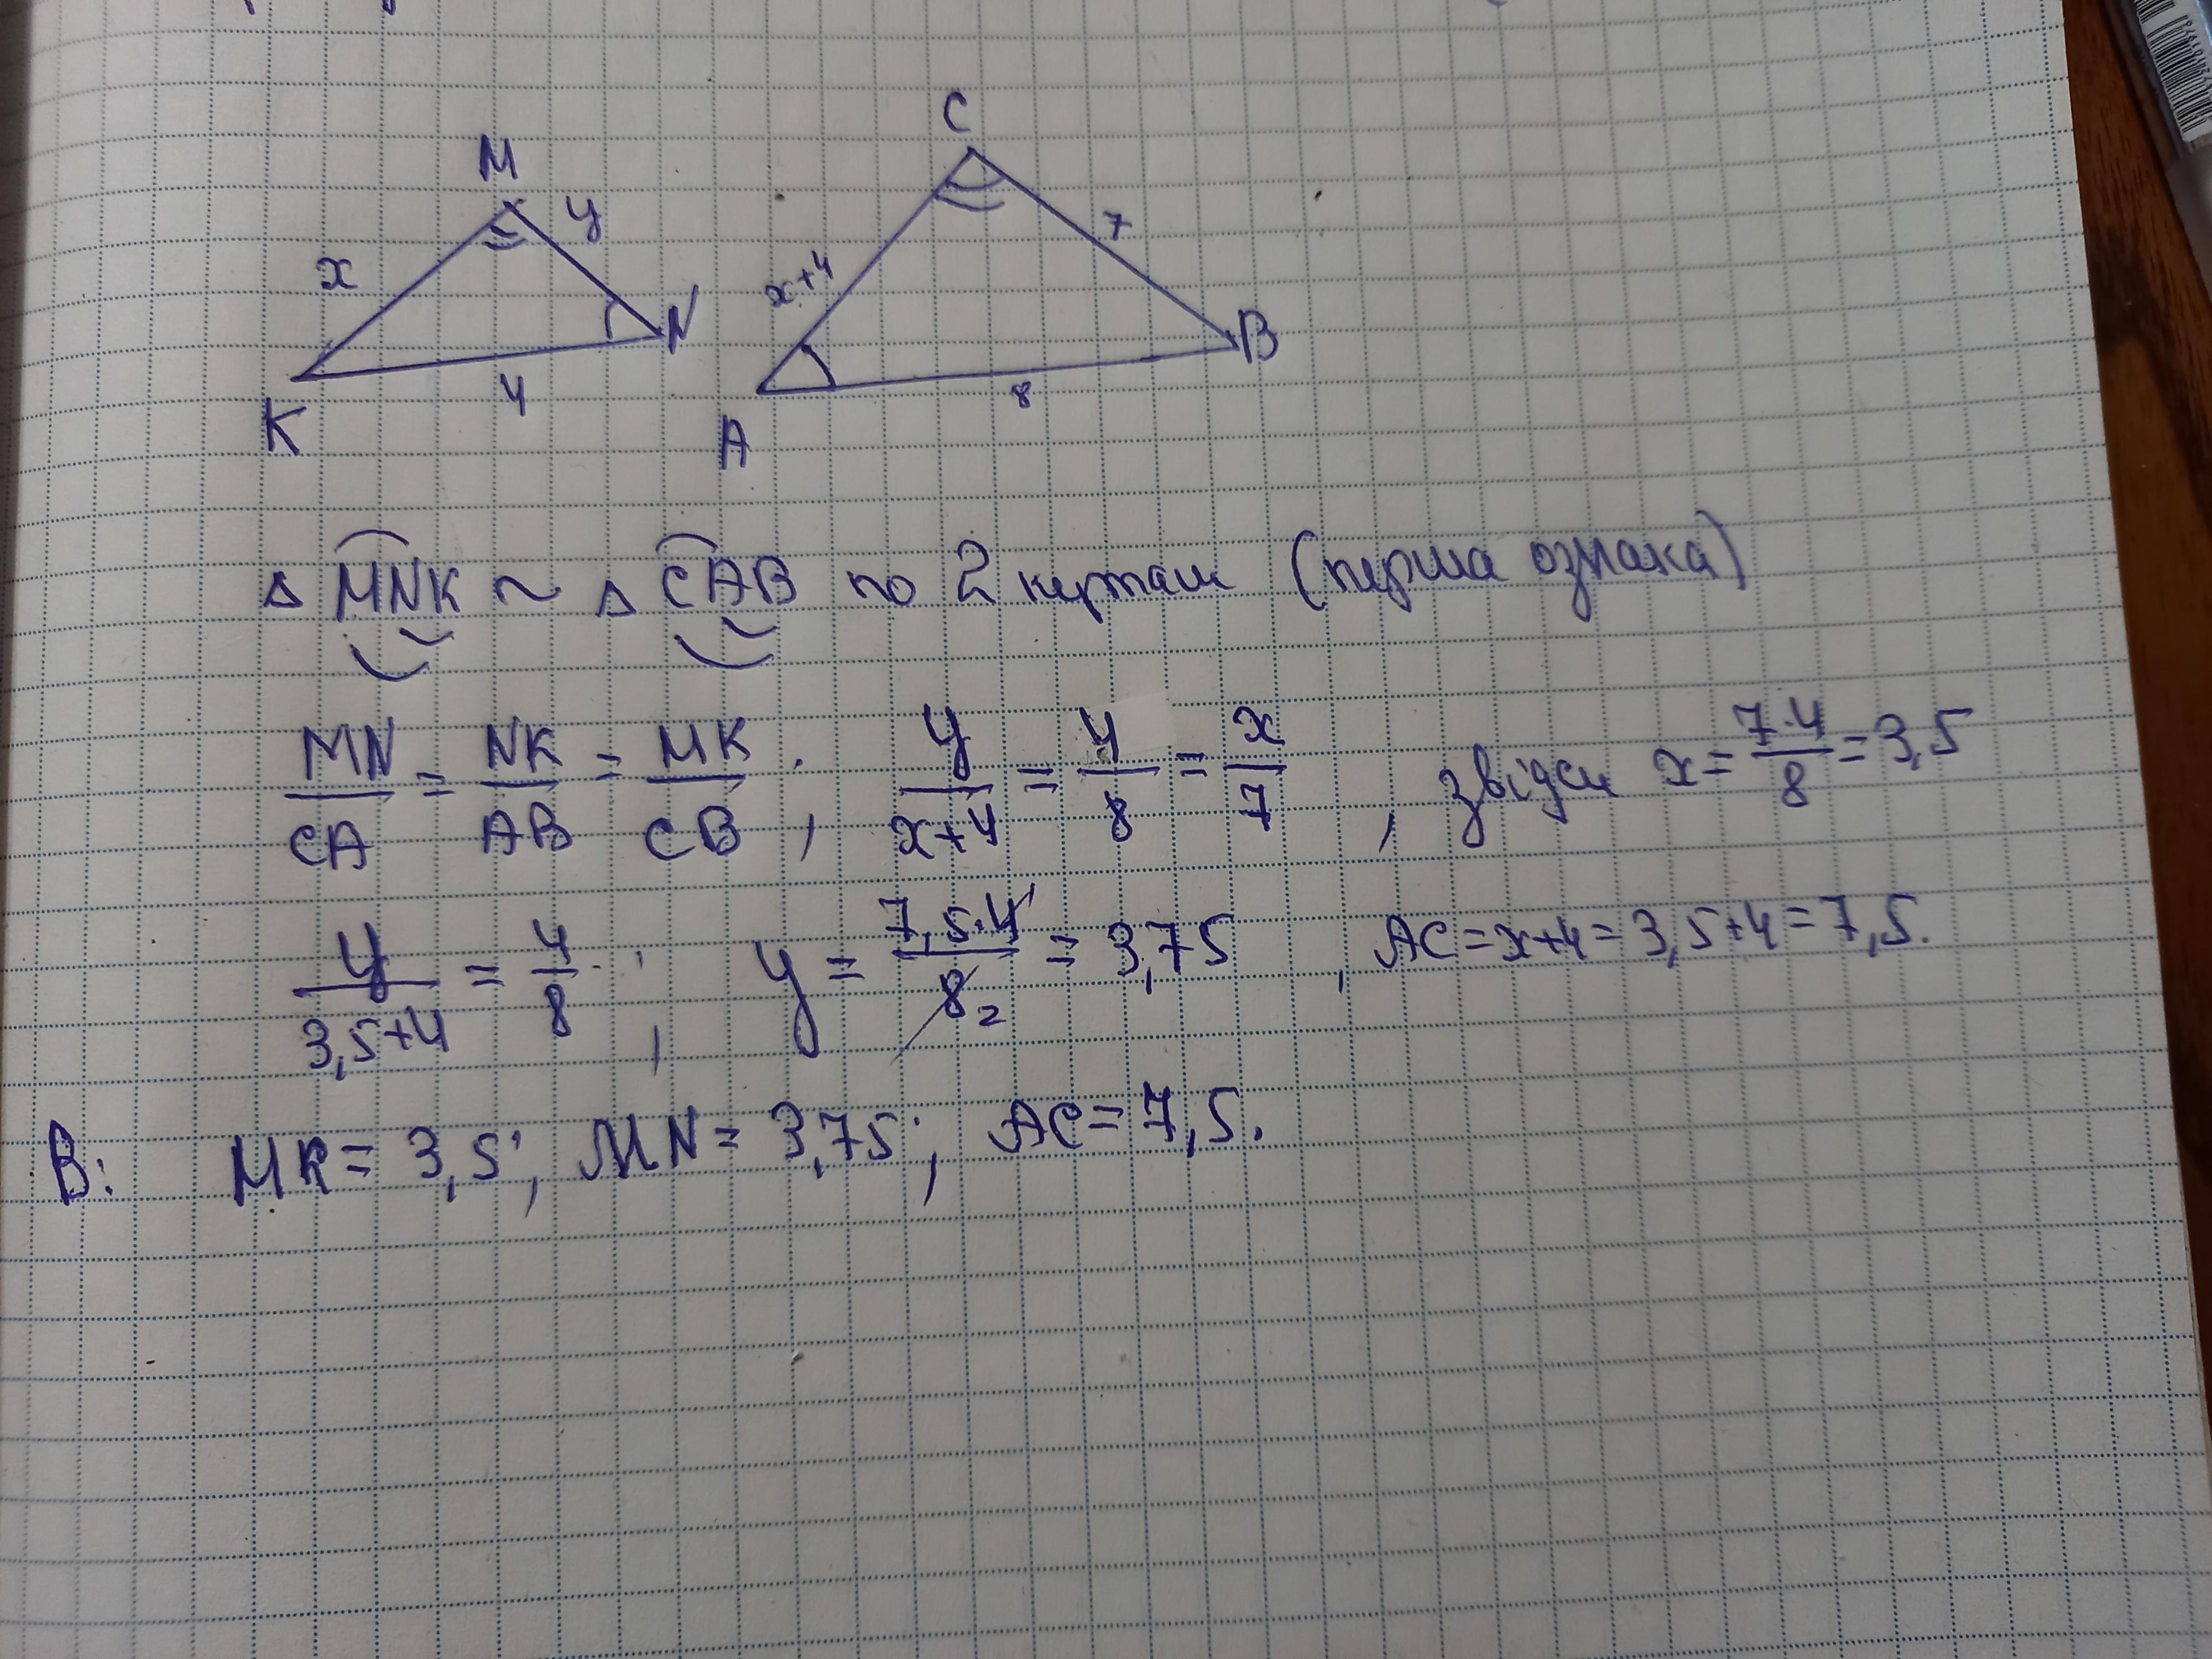 C
M
y
7
x
x+4
N
B
4
8
K
A
Δ MNK ~ Δ CAB по 2 кутам (перша ознака)
MN/CA = NK/AB = MK/CB ; y/x+4 = 4/8 = x/7 , звідси x = 7·4/8 = 3,5
y/3,5+4 = 4/8 ; y = 7,5·4/8 2 = 3,75 , AC = x+4 = 3,5+4 = 7,5.
В: MK = 3,5; MN = 3,75; AC = 7,5.